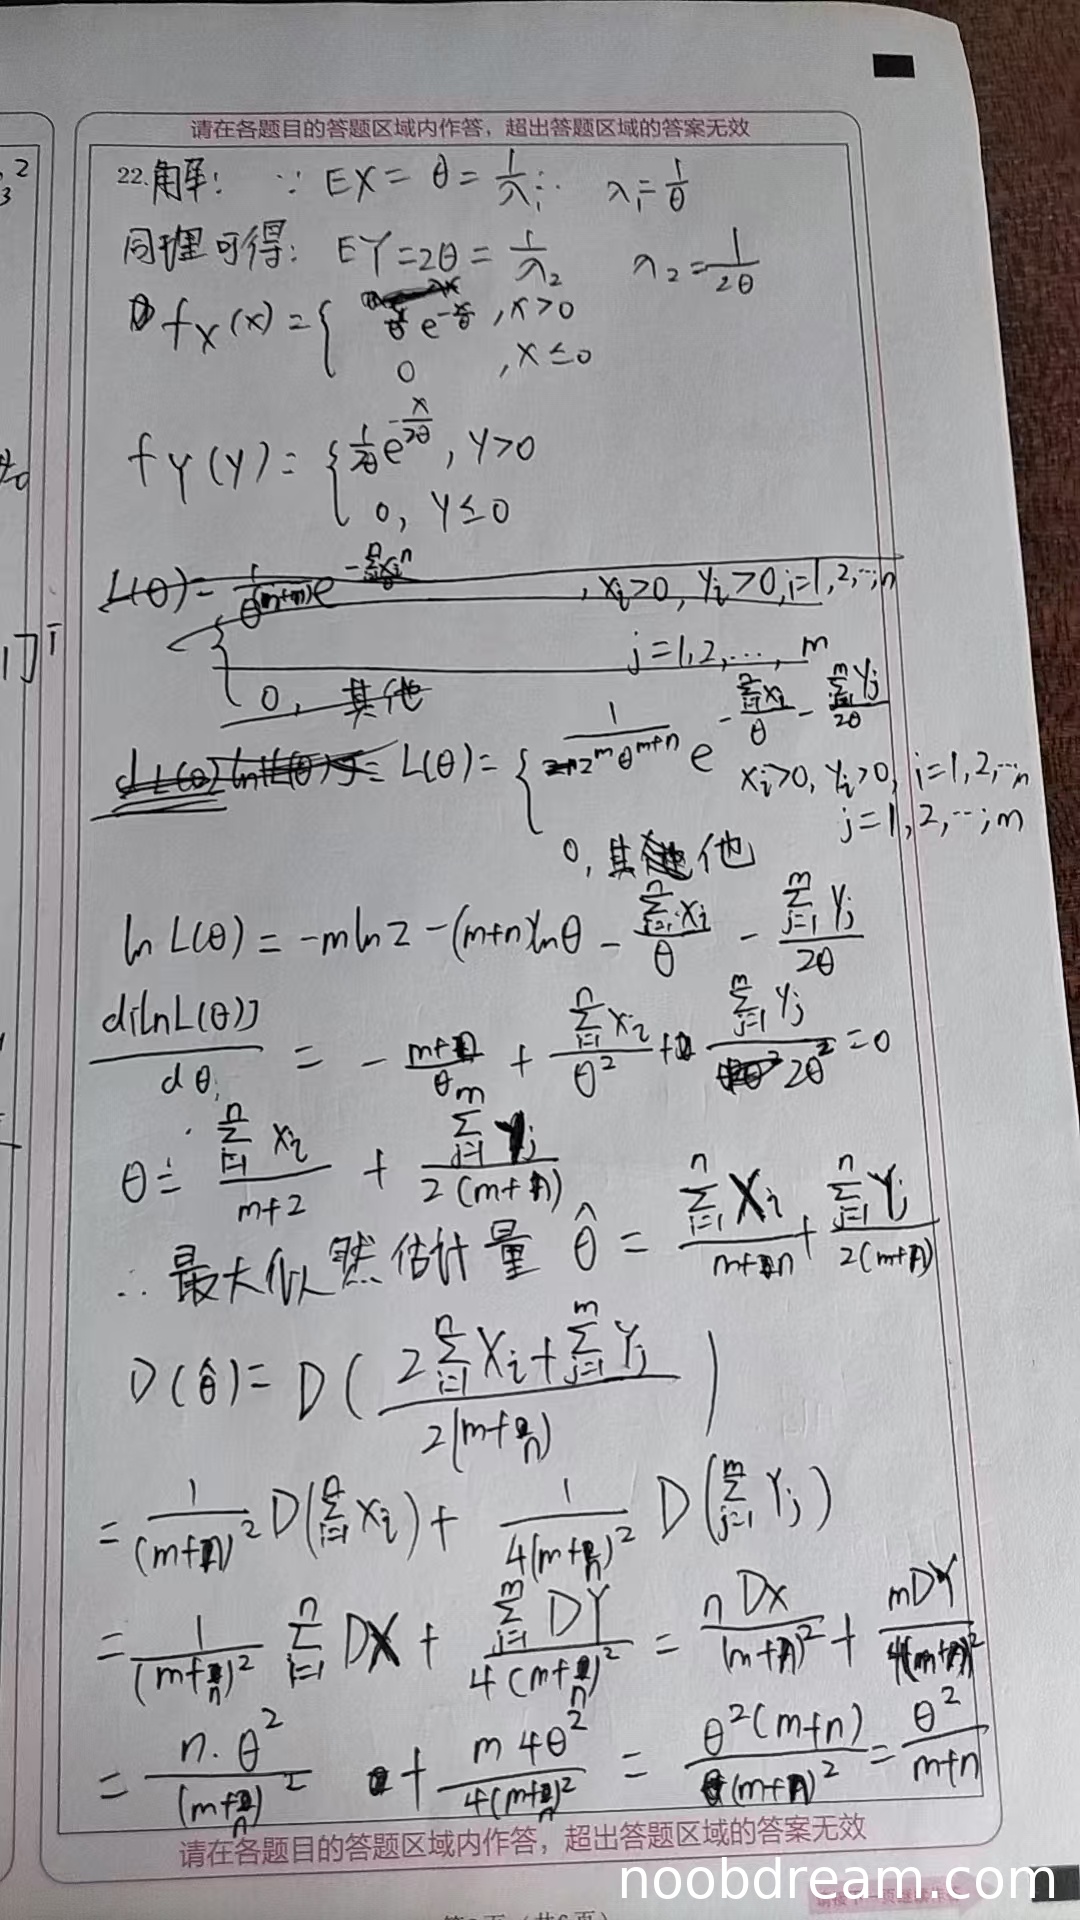 请在各题目的答题区域内作答，超出答题区域的答案无效
22.解: ∵ EX = θ = 1/λ₁ ∴ λ₁ = 1/θ
同理可得: EY = 2θ = 1/λ₂ λ₂ = 1/2θ
f_X(x) = { e^(-x/θ), x>0
0, x≤0
f_Y(y) = { 1/2θ e^(-x/2θ), y>0
0, y≤0
L(θ) = 1/θ^(m+n) e , xᵢ>0, yᵢ>0, i=1,2,…,n
j=1,2,…, m
0, 其他
L(θ) = { 1/(2^m θ^(m+n)) e^(-∑xᵢ/θ - ∑yⱼ/2θ)
xᵢ>0, yᵢ>0, i=1,2,…,n
j=1,2,…,m
0, 其他
ln L(θ) = -m ln2 - (m+n) lnθ - ∑(i=1→n) xᵢ / θ - ∑(j=1→m) yⱼ / 2θ
d[lnL(θ)] / dθ = - (m+n)/θ + ∑(i=1→n) xᵢ / θ² + ∑(j=1→m) yⱼ / 2θ² = 0
θ = ∑(i=1→n) xᵢ / (m+2) + ∑(j=1→m) yⱼ / 2(m+n)
∴ 最大似然估计量 θ̂ = ∑(i=1→n) Xᵢ / (m+n) + ∑(j=1→n) Yⱼ / 2(m+n)
D(θ̂) = D( (2∑(i=1→n) Xᵢ + ∑(j=1→m) Yⱼ) / 2(m+n) )
= 1/(m+n)² D(∑(i=1→n) Xᵢ) + 1/4(m+n)² D(∑(j=1→m) Yⱼ)
= 1/(m+n)² ∑(i=1→n) DX + ∑(j=1→m) DY / 4(m+n)² = nDX/(m+n)² + mDY/4(m+n)²
= n·θ²/(m+n)² + m4θ²/4(m+n)² = θ²(m+n)/(m+n)² = θ²/(m+n)
请在各题目的答题区域内作答，超出答题区域的答案无效
noobdream.com